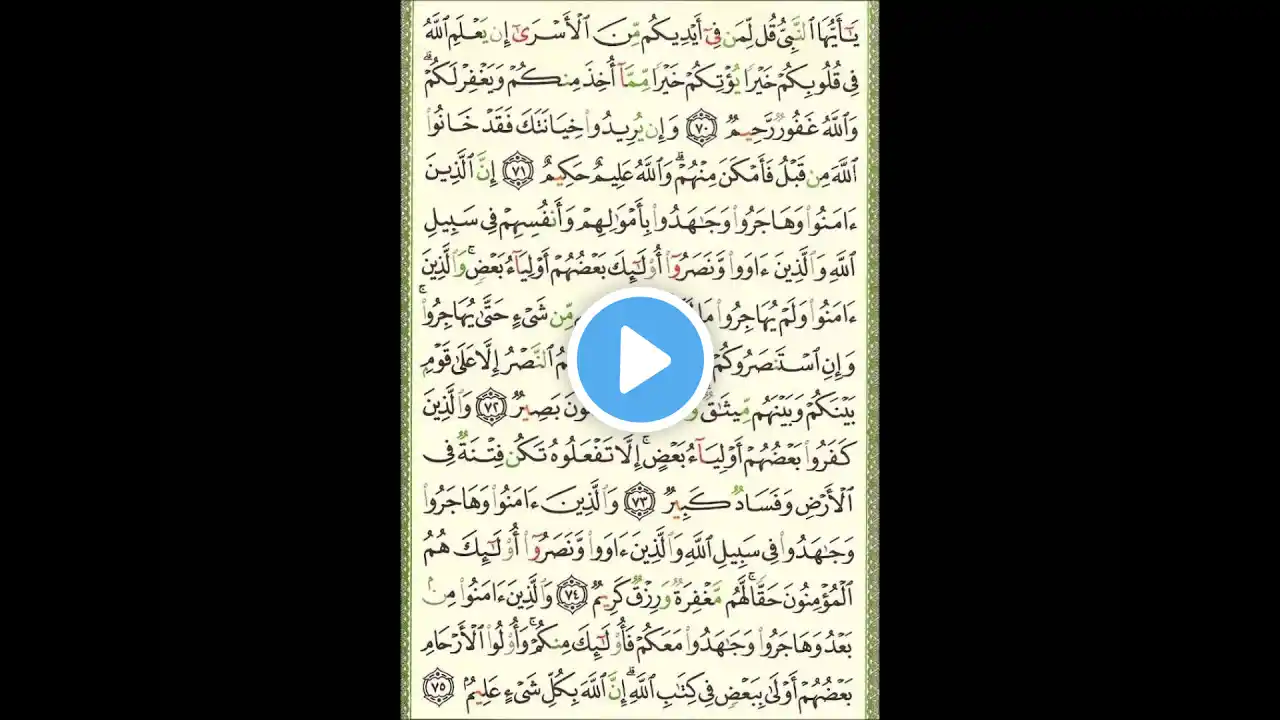 يَـٰٓأَيُّهَا ٱلنَّبِىُّ قُل لِّمَن فِىٓ أَيْدِيكُم مِّنَ ٱلْأَسْرَىٰٓ إِن يَعْلَمِ ٱللَّهُ
فِى قُلُوبِكُمْ خَيْرًا يُؤْتِكُمْ خَيْرًا مِّمَّآ أُخِذَ مِنكُمْ وَيَغْفِرْ لَكُمْ ۗ
وَٱللَّهُ غَفُورٌ رَّحِيمٌ ٧٠ وَإِن يُرِيدُوا۟ خِيَانَتَكَ فَقَدْ خَانُوا۟
ٱللَّهَ مِن قَبْلُ فَأَمْكَنَ مِنْهُمْ ۗ وَٱللَّهُ عَلِيمٌ حَكِيمٌ ٧١ إِنَّ ٱلَّذِينَ
ءَامَنُوا۟ وَهَاجَرُوا۟ وَجَـٰهَدُوا۟ بِأَمْوَٰلِهِمْ وَأَنفُسِهِمْ فِى سَبِيلِ
ٱللَّهِ وَٱلَّذِينَ ءَاوَوا۟ وَّنَصَرُوٓا۟ أُو۟لَـٰٓئِكَ بَعْضُهُمْ أَوْلِيَآءُ بَعْضٍ ۚ وَٱلَّذِينَ
ءَامَنُوا۟ وَلَمْ يُهَاجِرُوا۟ مَا مِّن شَىْءٍ حَتَّىٰ يُهَاجِرُوا۟ ۚ
وَإِنِ ٱسْتَنصَرُوكُمْ ٱلنَّصْرُ إِلَّا عَلَىٰ قَوْمٍ
بَيْنَكُمْ وَبَيْنَهُم مِّيثَـٰقٌ ۗ بَصِيرٌ ٧٢ وَٱلَّذِينَ
كَفَرُوا۟ بَعْضُهُمْ أَوْلِيَآءُ بَعْضٍ ۚ إِلَّا تَفْعَلُوهُ تَكُن فِتْنَةٌ فِى
ٱلْأَرْضِ وَفَسَادٌ كَبِيرٌ ٧٣ وَٱلَّذِينَ ءَامَنُوا۟ وَهَاجَرُوا۟
وَجَـٰهَدُوا۟ فِى سَبِيلِ ٱللَّهِ وَٱلَّذِينَ ءَاوَوا۟ وَّنَصَرُوٓا۟ أُو۟لَـٰٓئِكَ هُمُ
ٱلْمُؤْمِنُونَ حَقًّا ۚ لَّهُم مَّغْفِرَةٌ وَرِزْقٌ كَرِيمٌ ٧٤ وَٱلَّذِينَ ءَامَنُوا۟ مِنۢ
بَعْدُ وَهَاجَرُوا۟ وَجَـٰهَدُوا۟ مَعَكُمْ فَأُو۟لَـٰٓئِكَ مِنكُمْ ۚ وَأُو۟لُوا۟ ٱلْأَرْحَامِ
بَعْضُهُمْ أَوْلَىٰ بِبَعْضٍ فِى كِتَـٰبِ ٱللَّهِ ۗ إِنَّ ٱللَّهَ بِكُلِّ شَىْءٍ عَلِيمٌۢ ٧٥